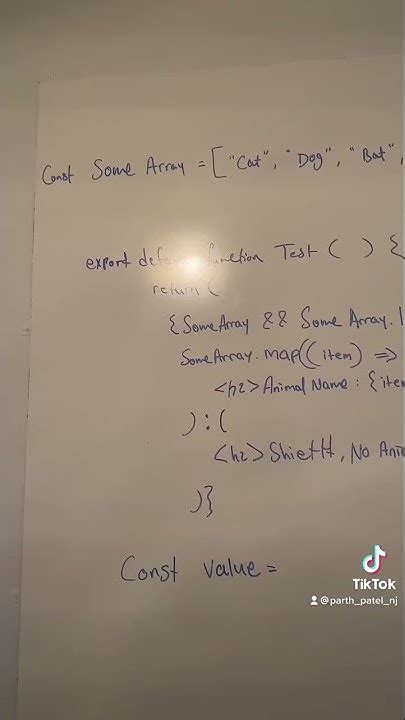 Const Some Array = ["Cat", "Dog", "Bat",
export default function Test ( ) {
return (
{SomeArray && Some Array.l
SomeArray.map((item) =>
<h2>Animal Name : {item
) : (
<h2>Shiett, No Ani
)}
Const value =
TikTok
@parth_patel_nj